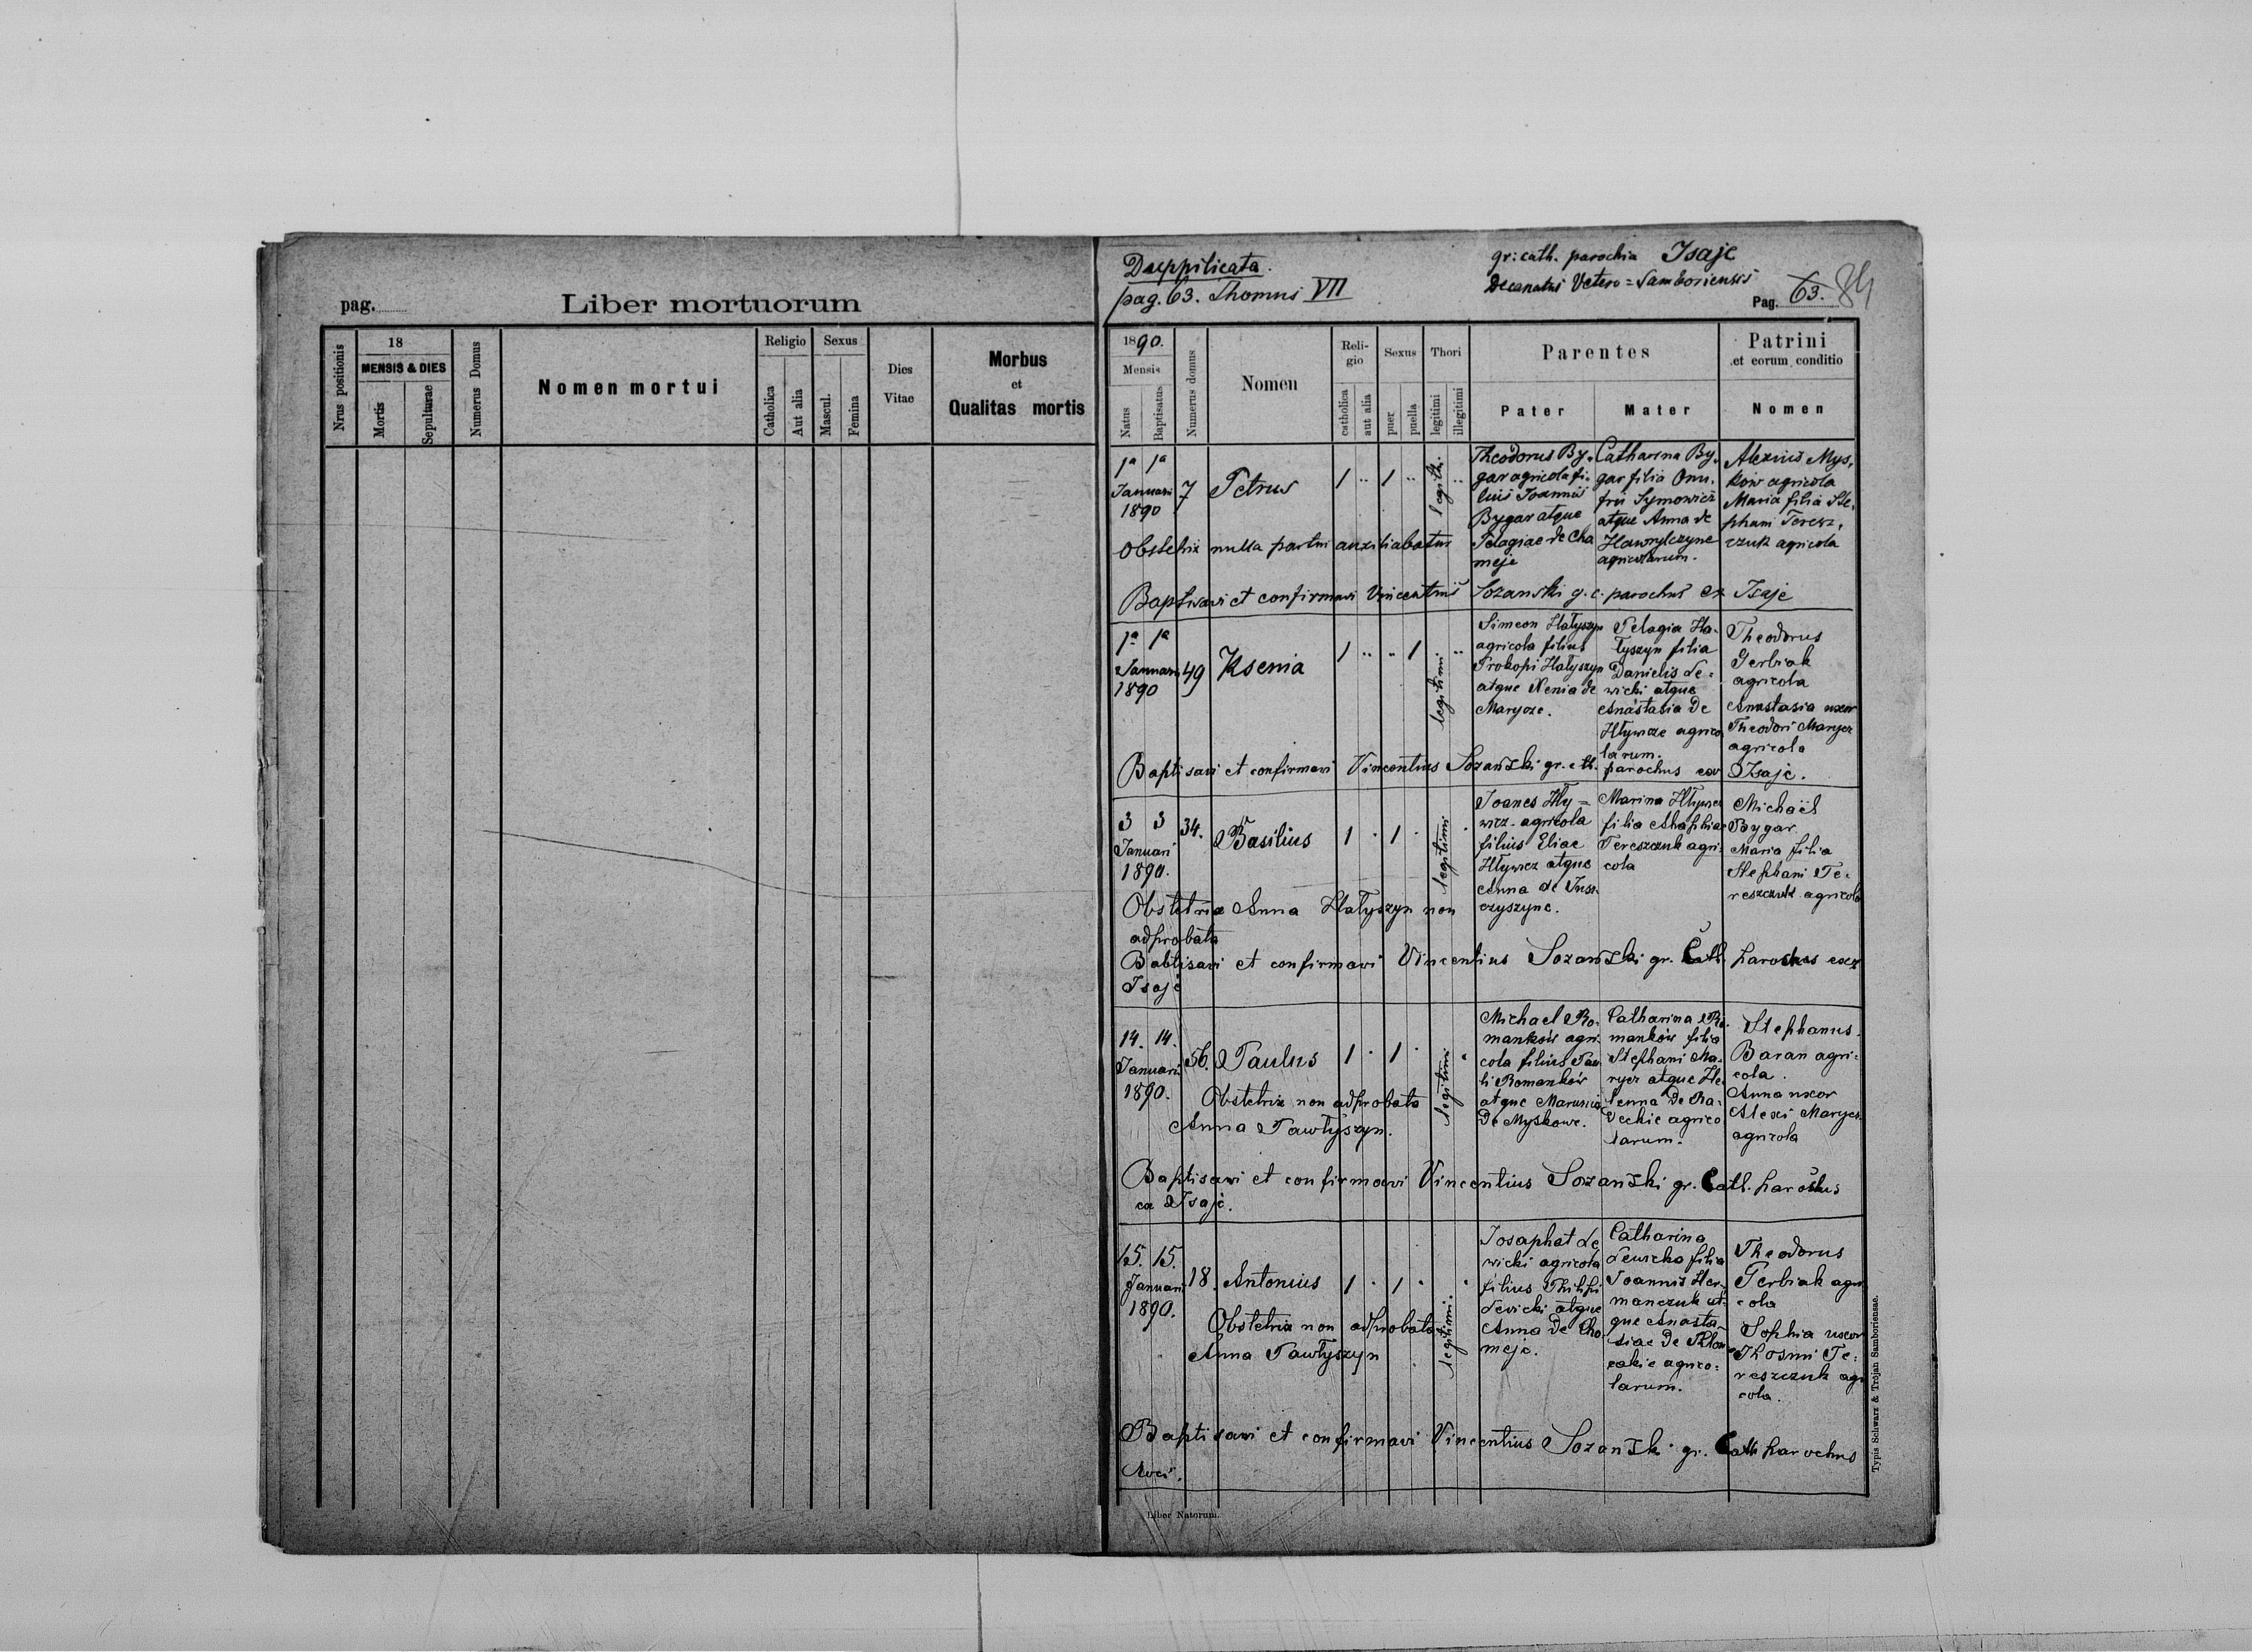 pag.
Liber mortuorum
Nrus positionis
18
MENSIS & DIES
Mortis
Sepulturae
Numerus Domus
Nomen mortui
Religio
Catholica
Aut alia
Sexus
Mascul.
Femina
Dies
Vitae
Morbus
et
Qualitas mortis
Duppilicata.
pag. 63. Thomus VII
gr: cath. parochia Isaje
Decanatus Vetero = Samboriensis
Pag. 63. 84
1890.
Mensis
Natus
Baptisatus
Numerus domus
Nomen
Reli-
gio
catholica
aut alia
Sexus
puer
puella
Thori
legitimi
illegitimi
Parentes
Pater
Mater
Patrini
et eorum conditio
Nomen
1a 1a
Januari
1890
7
Petrus
1 " 1 "
legith.
"
Theodorus By-
gar agricola fi-
lius Joannis
Bygar atque
Pelagiae de Cha
meje
Catharina By.
gar filia Onu.
frii Symowicz
atque Anna de
Hawrylczyne
agricolarum.
Alexius Mys,
kow agricola
Maria filia Ste,
phani Teresz,
czuk agricola
Obstetrix nulla partui auxiliabatur
Baptisavi et confirmavi Vincentius Sozanski g. c. parochus ex Isaje
1a 1a
Januari
1890
49
Ksenia
1 " " 1
legitimi
"
Simeon Hałyszyn
agricola filius
Prokopi Hałyszyn
atque Xenia de
Maryoze.
Pelagia Ha-
łyszyn filia
Danielis Le-
wicki atque
Anastasia de
Hływcze agrico
larum.
Theodorus
Gerbiak
agricola
Anastasia uxor
Theodori Marycz
agricola
Baptisavi et confirmavi Vincentius Sozański gr. cth. parochus ex Isaje.
3 3
Januari
1890.
34.
Basilius
1 . 1 .
legitimi
.
Joanes Hły =
wcz. agricola
filius Eliae
Hływcz atque
Anna de Jusz
czyszyne.
Marina Hływcz
filia
Tereszczuk agri
cola
Michaël
Bygar
Maria filia
Stephani Te-
reszczuk agricola
Obstetrix Anna Hałyszyn non
adprobata
Babtisavi et confirmavi Vincentius Sozański gr. Cath. parochus ex
Isaje
14. 14.
Januari
1890.
56.
Paulus
1 . 1 .
legitimi
.
Michael Ro.
manków agri.
cola filius Pau
li Romanków
atque Marunia
de Myskowe.
Catharina Ro.
manków filia
Stephani Ma-
rycz atque He
lenna de Ra-
deckie agrico
larum.
Stephanus
Baran agri-
cola.
Anna uxor
Alexi Marycz
agricola
Obstetrix non adprobata
Anna Pawłyszyn.
Baptisavi et confirmavi Vincentius Sozański gr. Cath. parochus
ex Isaje.
15. 15.
Januari
1890.
18.
Antonius
1 . 1 .
legitimi.
.
Josaphat Le
wicki agricola
filius Philipi
Levicki atque
Anna de Cho
meje.
Catharina
Lewicka filia
Joannis Her-
manczuk at-
que Anasta-
siae de
agrico-
larum.
Theodorus
Gerbiak agri
cola
Sophia uxor
Te-
reszczuk agri
cola.
Obstetrix non adprobata
Anna Pawłyszyn
Baptisavi et confirmavi Vincentius Sozański gr. Cath. parochus
loci.
Liber Natorum.
Typis Schwarz & Trojan Samboriensae.